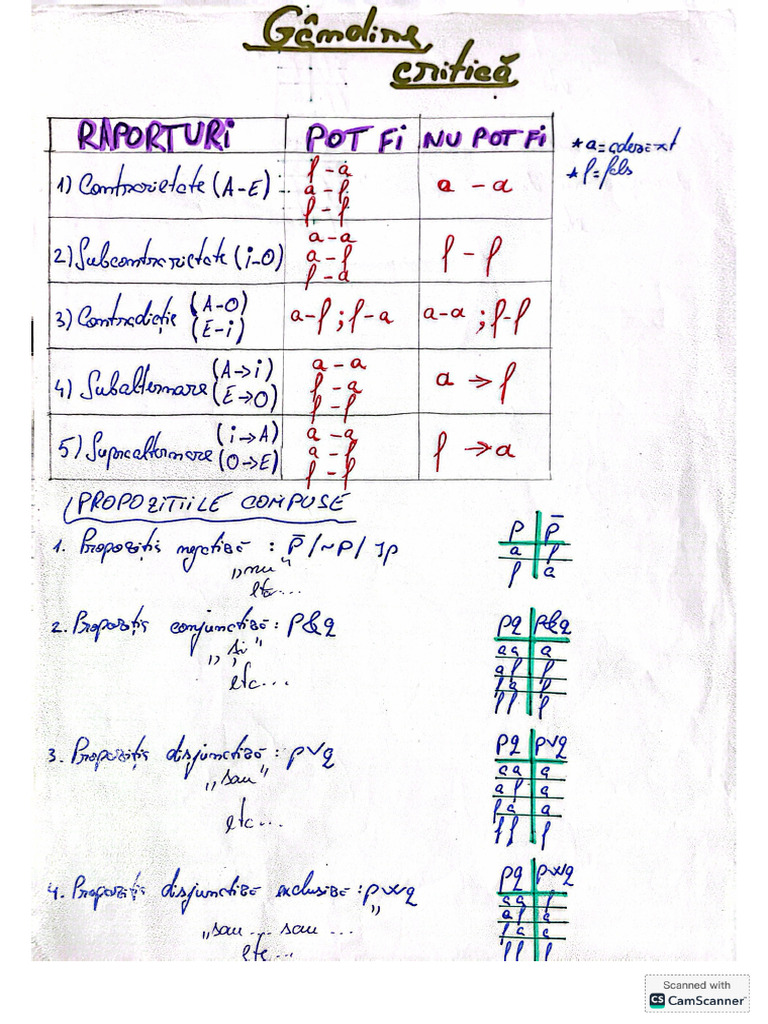 Gândire
critică
RAPORTURI POT FI NU POT FI
* a = adevărat
* f = fals
1) Contrarietate (A-E) f - a a - f f - f a - a
2) Subcontrarietate (i-O) a - a a - f f - a f - f
3) Contradicție (A-O) (E-i) a-f ; f-a a-a ; f-f
4) Subalternare (A→i) (E→O) a - a f - a f - f a → f
5) Supraalternare (i→A) (O→E) a - a a - f f - f f → a
PROPOZIȚIILE COMPUSE
1. Propoziția negativă : p̄ / ~p / ⌉p
„nu"
etc...
p p̄
a f
f a
2. Propoziția conjunctivă : p&q
„și"
„ , "
etc...
pq p&q
aa a
af f
fa f
ff f
3. Propoziția disjunctivă : p∨q
„sau"
etc...
pq p∨q
aa a
af a
fa a
ff f
4. Propoziția disjunctivă exclusivă : pwq
„sau ... sau ... "
etc...
pq pwq
aa f
af a
fa a
ff f
Scanned with
CS CamScanner